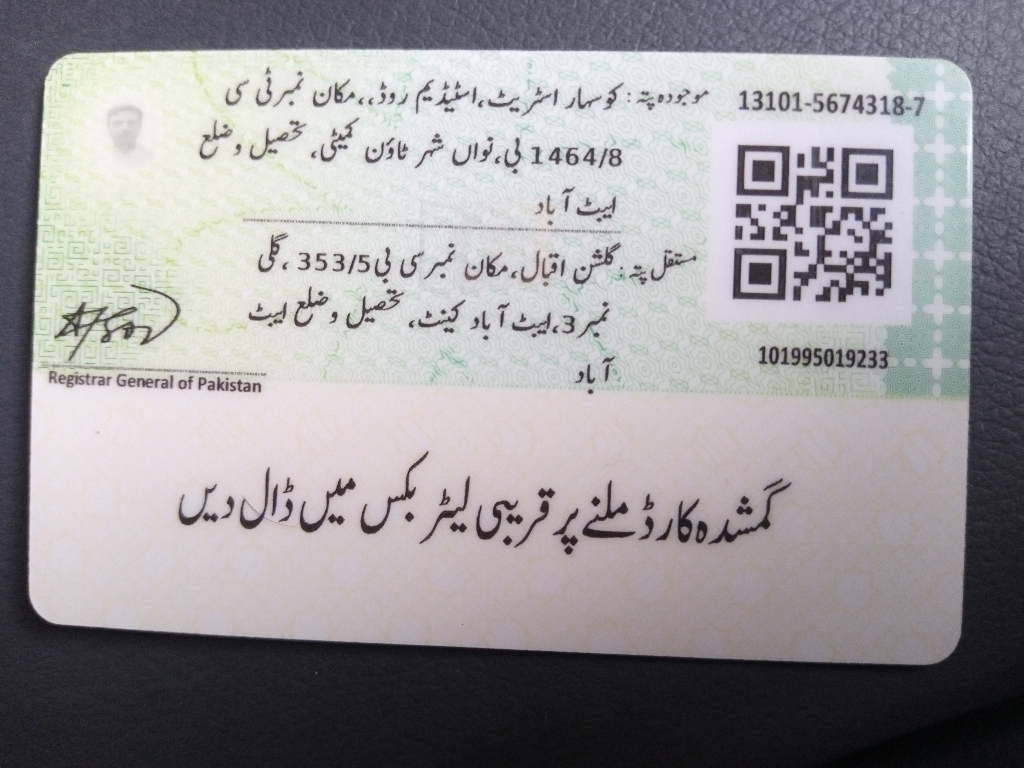 13101-5674318-7
موجودہ پتہ: کوہسار اسٹریٹ،اسٹیڈیم روڈ،،مکان نمبر ٹی سی
1464/8 بی،نواں شہر ٹاؤن کمیٹی، تحصیل و ضلع
ایبٹ آباد
مستقل پتہ: گلشن اقبال،مکان نمبر سی بی 353/5 ،گلی
نمبر 3،ایبٹ آباد کینٹ، تحصیل و ضلع ایبٹ
آباد
101995019233
Registrar General of Pakistan
گمشدہ کارڈ ملنے پر قریبی لیٹر بکس میں ڈال دیں